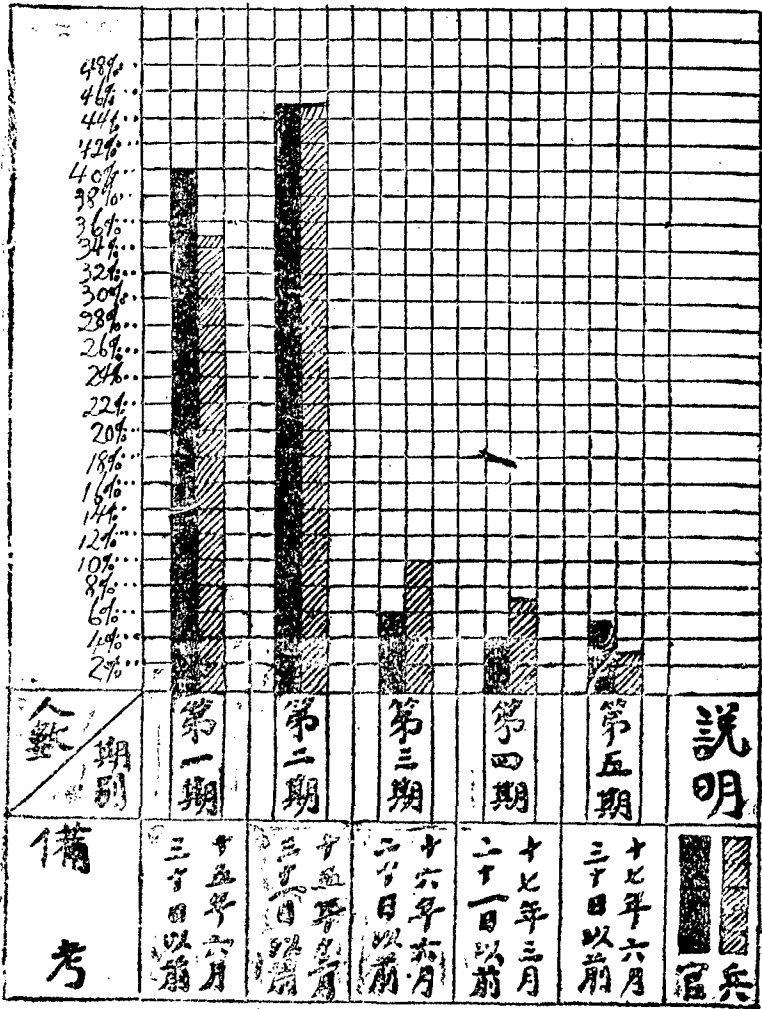 48%
46%
44%
42%
40%
38%
36%
34%
32%
30%
28%
26%
24%
22%
20%
18%
16%
14%
12%
10%
8%
6%
4%
2%
人數
期別
第一期
第二期
第三期
第四期
第五期
説明
備考
十五年六月
三十日以前
十五年
三十一日以前
十六年六月
二十日以前
十七年三月
二十一日以前
十七年六月
三十日以前
兵
官